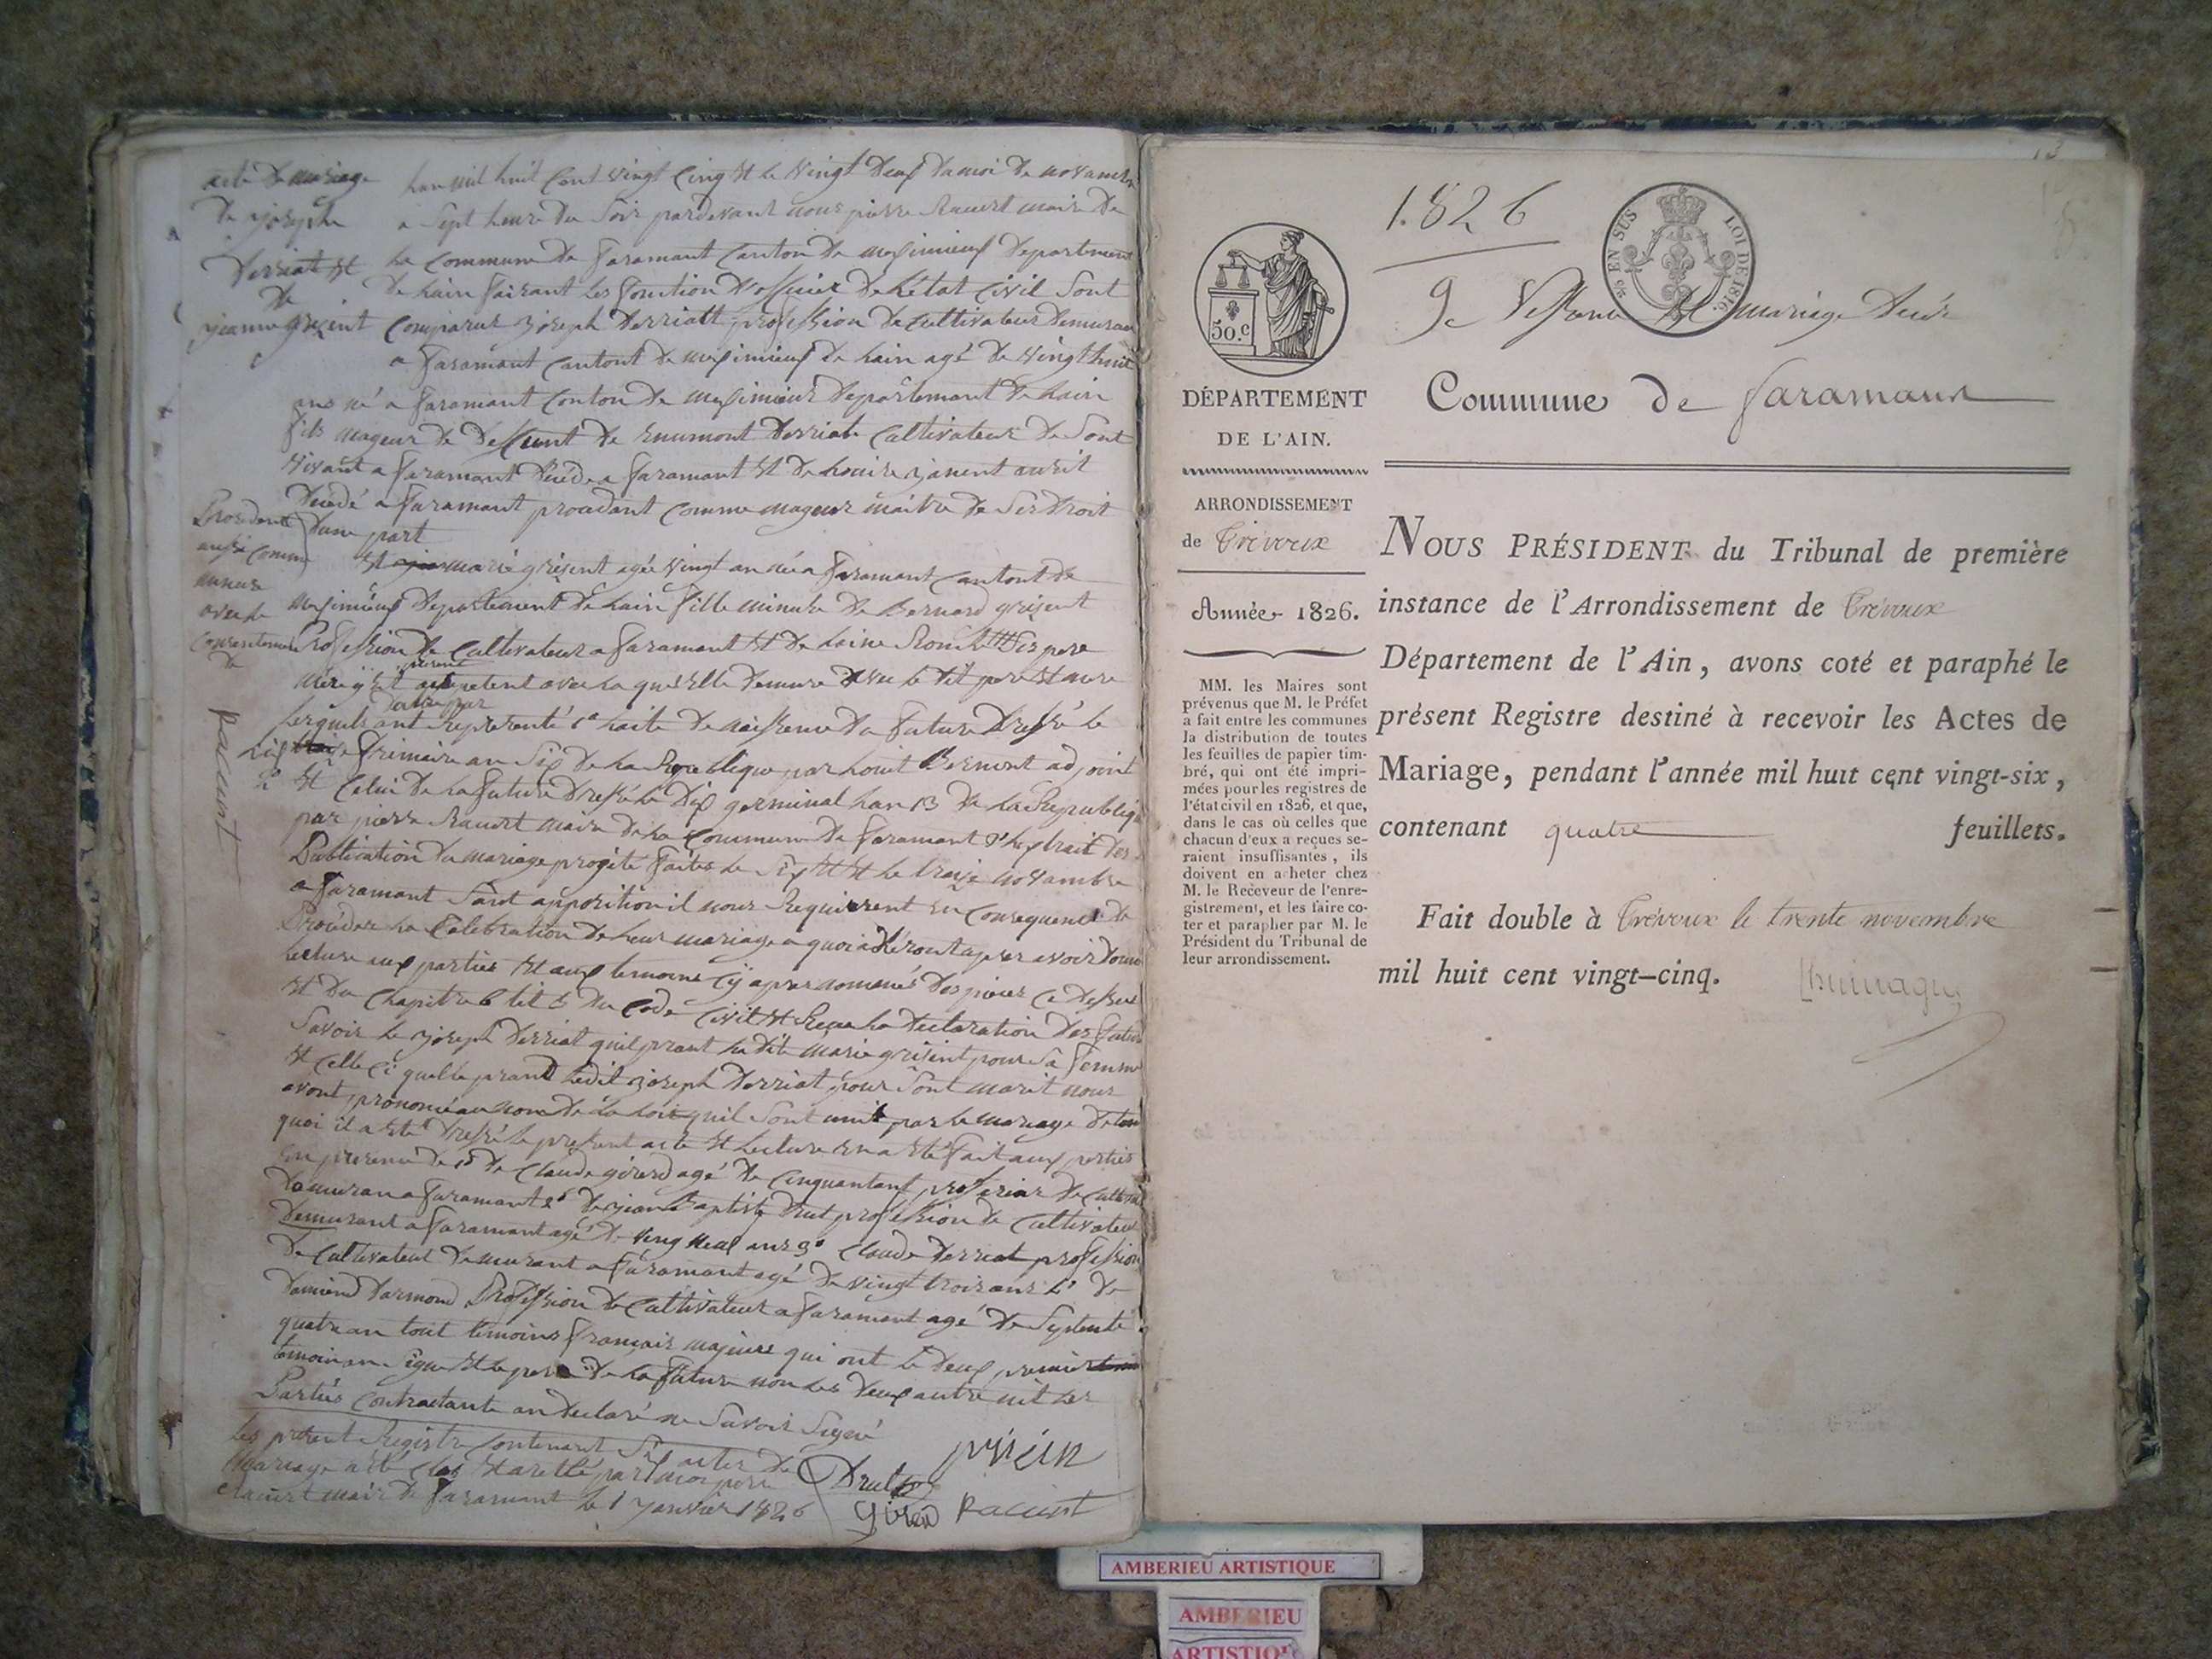 acte de mariage
de joseph
Derriat et
de
jeanne grisent
han mil huit Cent vingt Cinq et le vingt deux du moi de novambre
a sept heure du Soir pardevant nous pierre Racurt maire de
la Commune de faramant Canton de meximieux Departement
de hain faisant les fonction dofficier de létat Civil Sont
Comparus joseph Derriatt profession de Cultivateur demuran
a faramant Cantont de meximieux de hain agé de vingt huit
ans né a faramant Conton de meximieux departemant de hain
fils mageur de deffunt de Derriat Cultivateur de Sont
vivant a faramant déicéde a faramant et de
decedé a faramant procedant Comme mageur maitre de Ses droit
dune part
Procedante
aussi comme
mineure
avec le
Consentement
de
Racurt
Et marie grisent agée vingt an née a faramant Cantont de
meximieux departement de hain fille mineure de Bernard grisent
Profession de Cultivateur a faramant et de Ses pere
mere avec la quelle demeure le dit pere et mere
lesquels ont Representé 1° de naissence du future dressé le
frimaire an Six de la Republique par adjoint
2° et Celui de la future dressé le dix germinal han 13 de la Republique
par pierre Racurt maire de la Commune de faramant des
Publication du mariage progeté faites le Six et le treize novambre
a faramant Sans apposition il nous Requierent en Consequence de
Proceder la Celebration de leur mariage a quoi apres avoir donné
lecture aux parties et aux temoins cy apres nommés des pieces Ci dessus
et du Chapitre 6 tit 5 du Code Civil et Reçu la declaration des future
Savoir le joseph Derriat quil prant la dite marie grisent pour Sa femme
et celle Ci quelle prant ledit joseph Derriat pour Sont marit nous
avont prononcé au nom de la loit quil Sont unit par le mariage de tou
quoi il a eté dressé le present acte et lecture en a eté fait aux parties
en presence de 1° de Claude girerd agé de Cinquant ans profession de Cultiva
demuran a faramant 2° de jean Baptiste Drut profession de Cultivateur
demurant a faramant agé de ving ans 3° Claude Derriat profession
de Cultivateur demurant a faramant agé de vingt trois ans 4° de
Damien darmond Profession de Cultivateur a faramant agé de Septente
quatre an tout temoins français majeurs qui ont le deux premier
temoin an Signe et le pere de la future non les deux autre nit les
Parties Contractante an declaré ne Savoir Signé
les present Registre Contenant Six actes de
mariage a été Clos et aretté par moi pere
Racurt maire de faramant le 1 janvier 1826
Drut
girerd Racurt
1.826
mariage
Commune de faramans
9/10 EN SUS
LOI DE 1816.
50.c
DÉPARTEMENT
DE L'AIN.
ARRONDISSEMENT
de Trévoux
Année 1826.
MM. les Maires sont
prévenus que M. le Préfet
a fait entre les communes
la distribution de toutes
les feuilles de papier tim-
bré, qui ont été impri-
mées pour les registres de
l'état civil en 1826, et que,
dans le cas où celles que
chacun d'eux a reçues se-
raient insuffisantes, ils
doivent en acheter chez
M. le Receveur de l'enre-
gistrement, et les faire co-
ter et parapher par M. le
Président du Tribunal de
leur arrondissement.
NOUS PRÉSIDENT du Tribunal de première
instance de l'Arrondissement de Trévoux
Département de l'Ain, avons coté et paraphé le
présent Registre destiné à recevoir les Actes de
Mariage, pendant l'année mil huit cent vingt-six,
contenant quatre feuillets.
Fait double à Trévoux le trente novembre
mil huit cent vingt-cinq.
AMBERIEU ARTISTIQUE
AMBERIEU
ARTISTIQUE